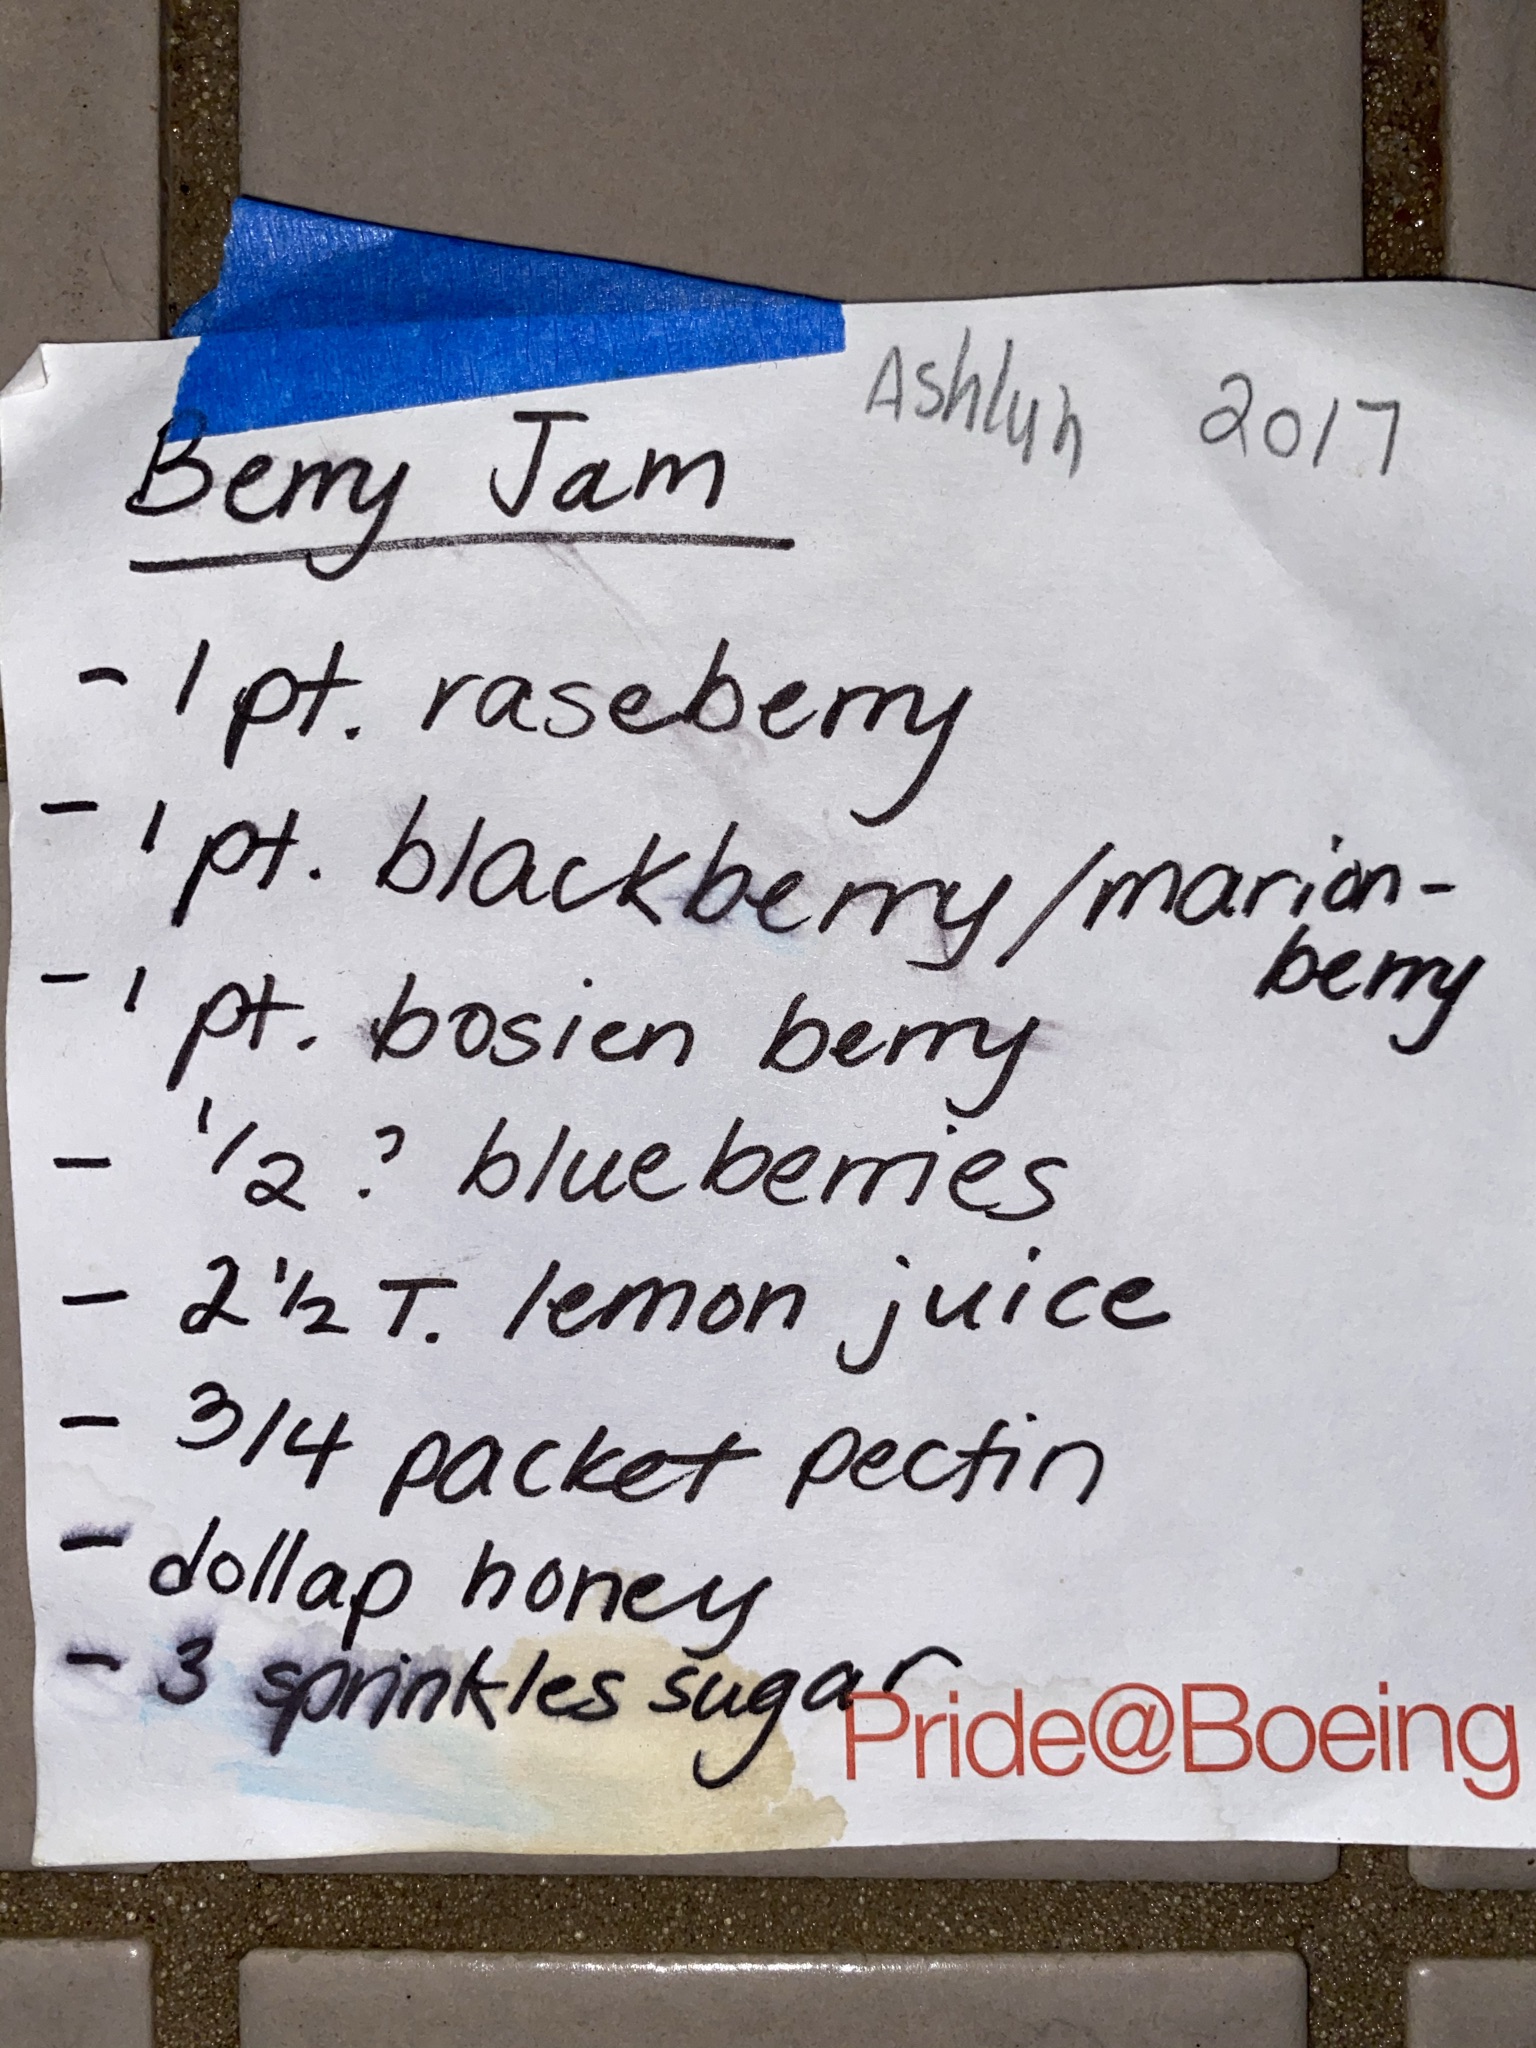 Ashlyn 2017
Berry Jam
- 1 pt. raseberry
- 1 pt. blackberry/marion-
berry
- 1 pt. bosien berry
- 1/2 ? blueberries
- 2 1/2 T. lemon juice
- 3/4 packet pectin
- dollap honey
- 3 sprinkles sugar
Pride@Boeing